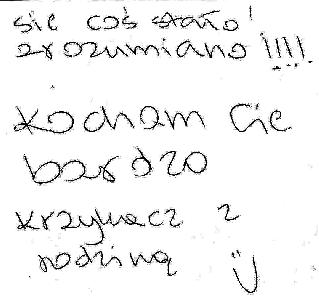 sie coś stało!
zrozumiano!!!!
Kocham Cie
bardzo
Krzykacz z
rodziną